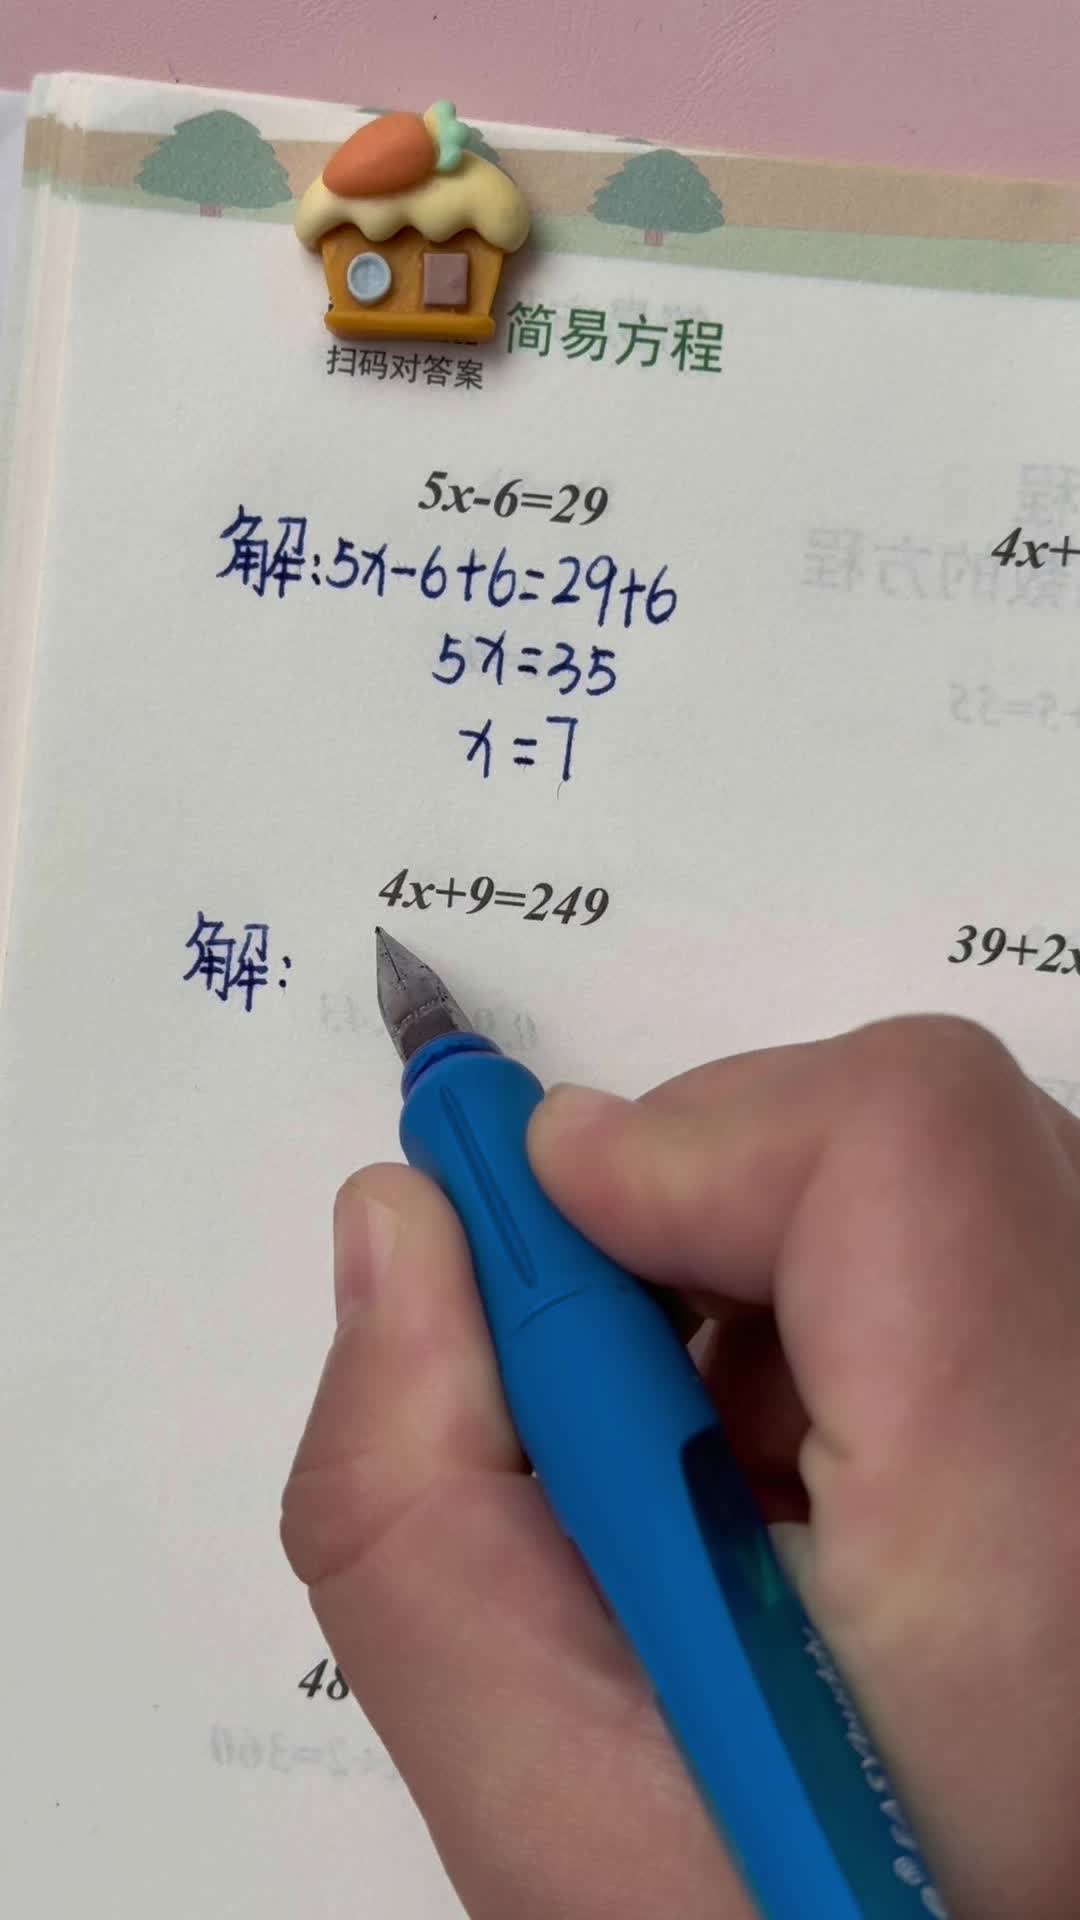 简易方程
扫码对答案
5x-6=29
解:5x-6+6=29+6
5x=35
x=7
4x+
4x+9=249
解:
39+2x
48